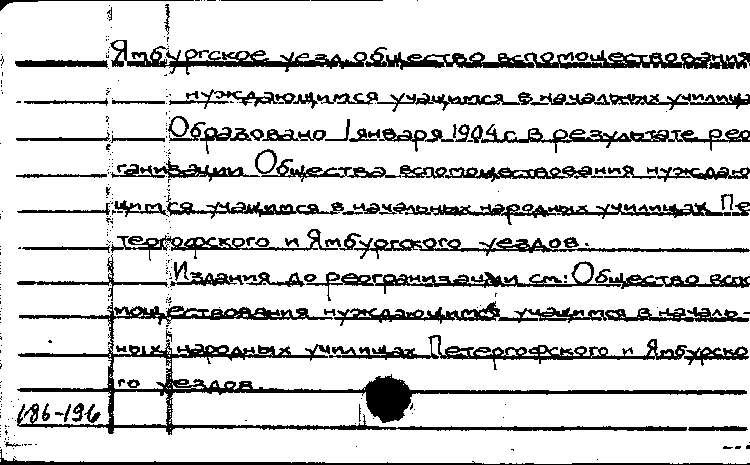 Ямбургское уезд. общество вспомоществования
нуждающимся учащимся в начальных училища
Образовано 1 января 1904 г. в результате рео
ганизации Общества вспомоществования нуждаю
щимся учащимся в начальных народных училищах Пе
тергофского и Ямбургского уездов.
Издания до реогранизации см: Общество вспо
моществования нуждающимся учащимся в началь-
ных народных училищах Петергофского и Ямбурско
го уездов.
186-196